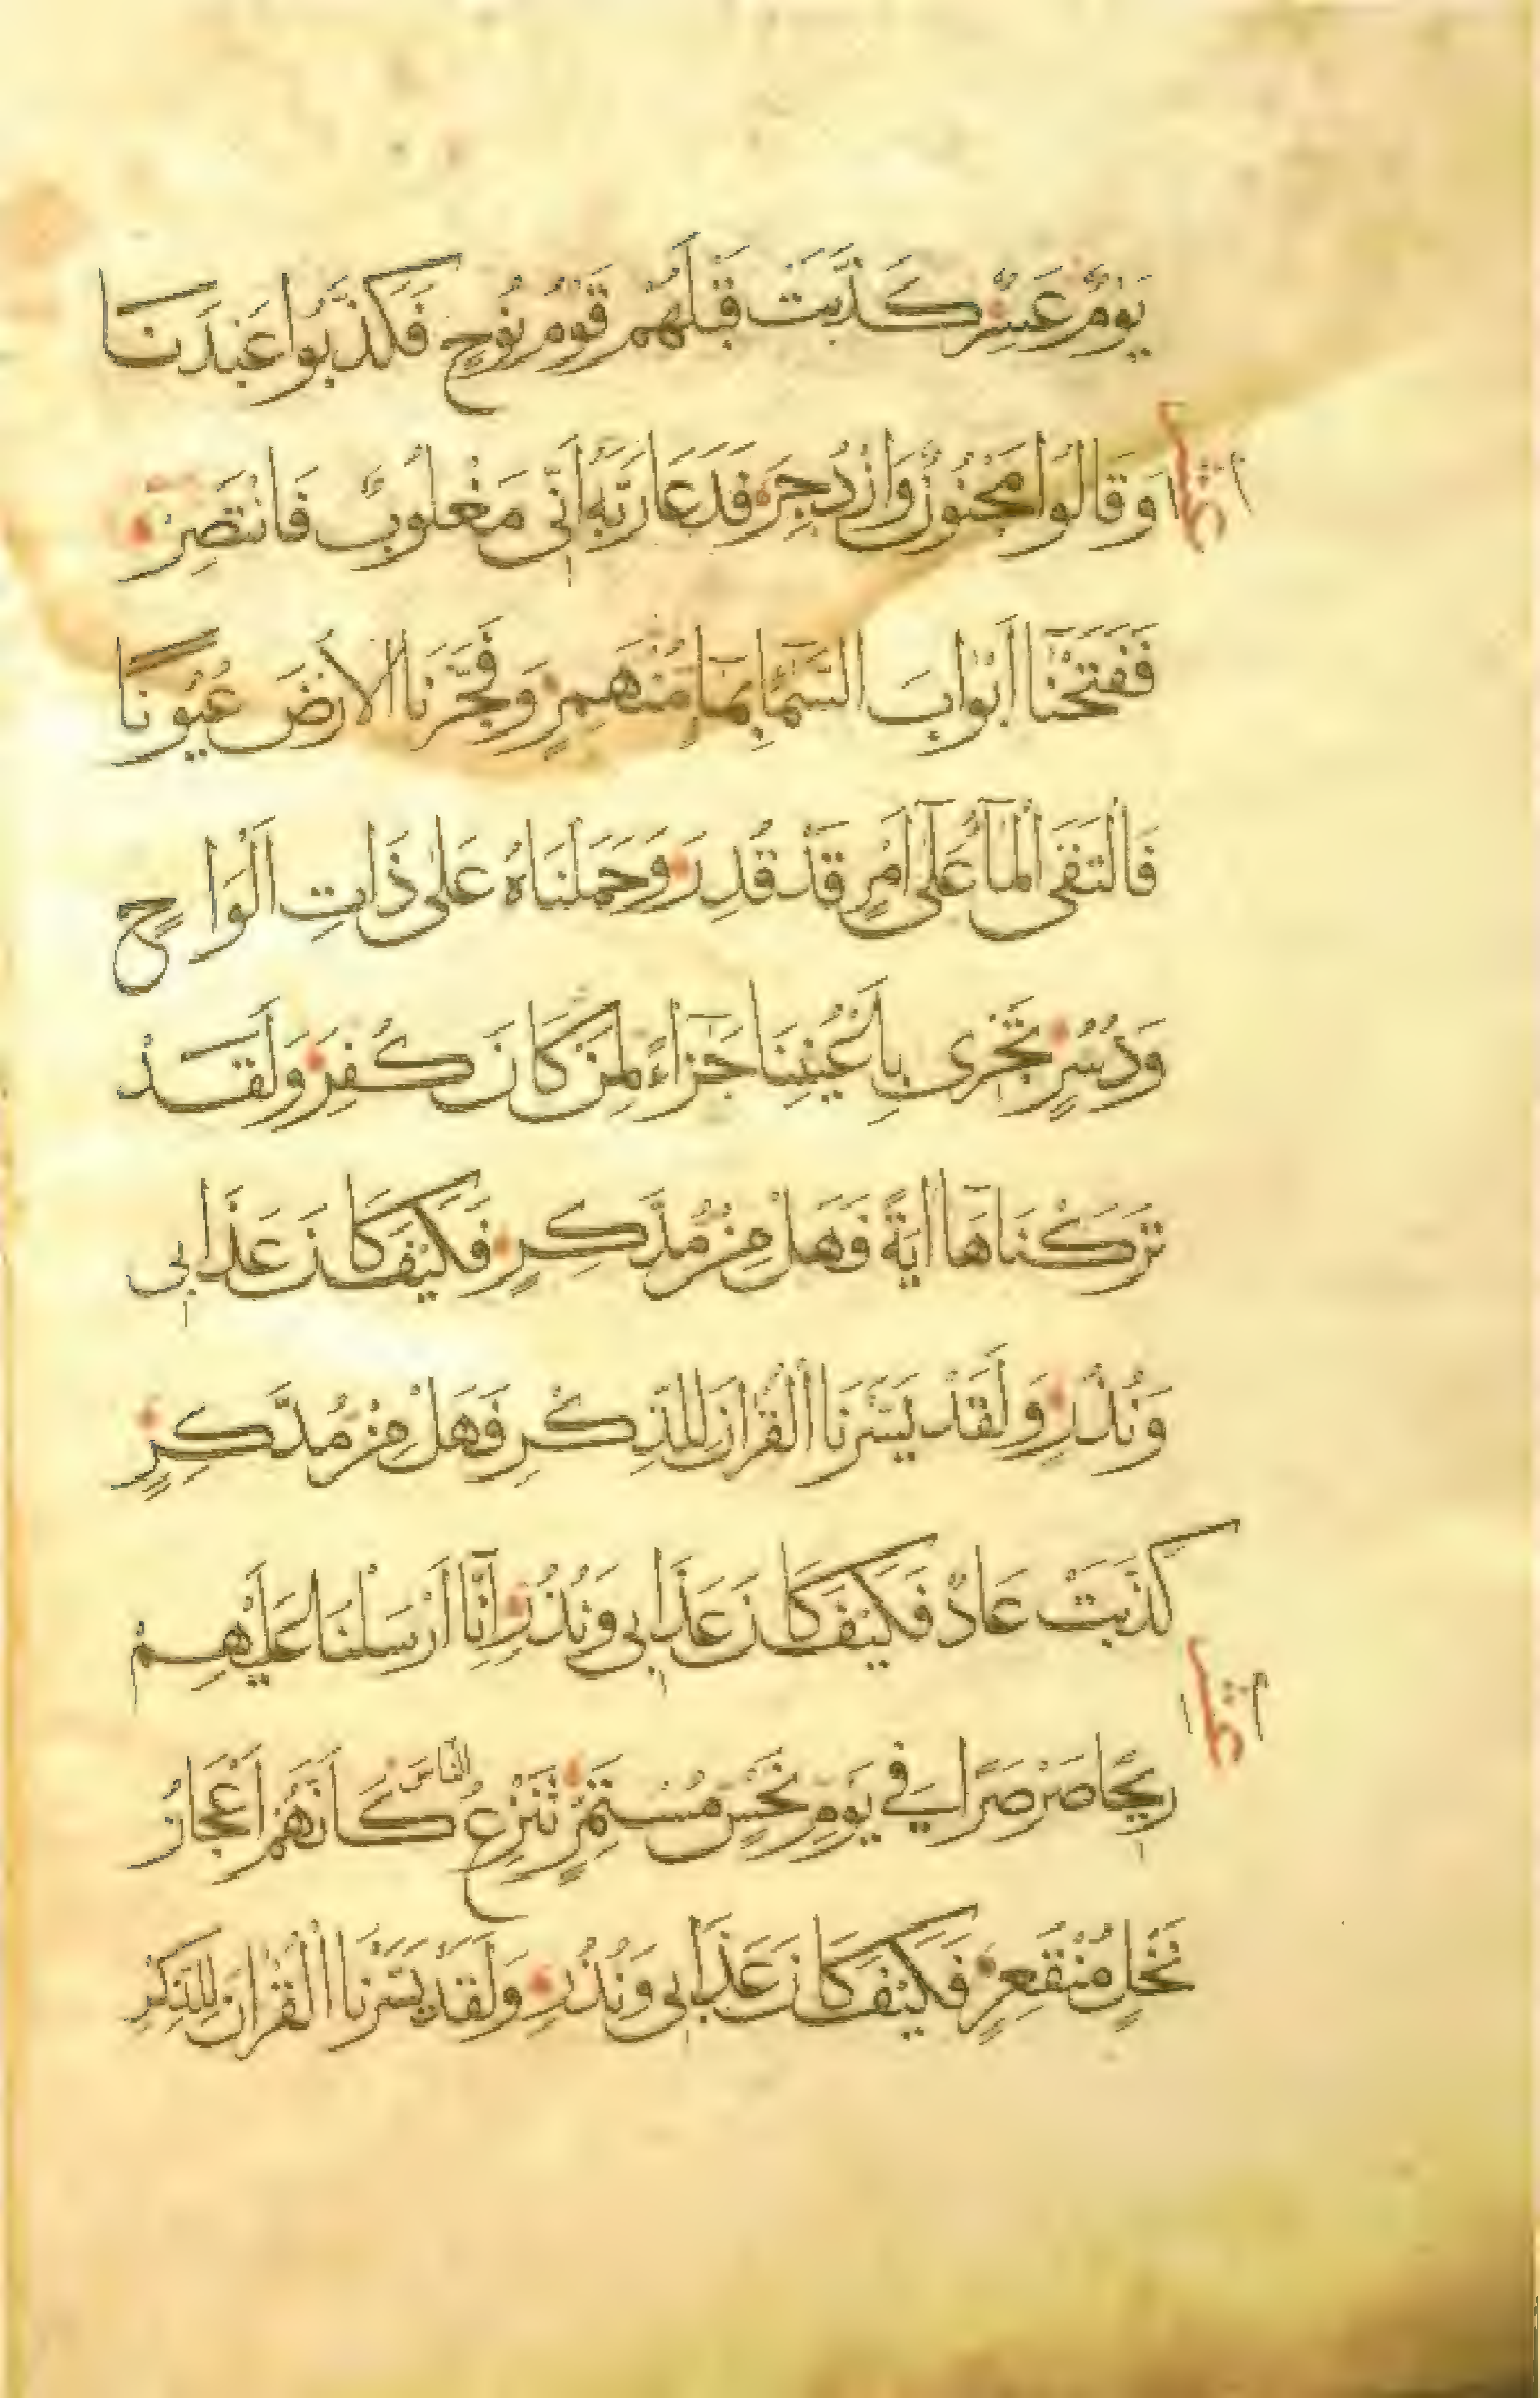 يَوْمٌ عَسِرٌ كَذَّبَتْ قَبْلَهُمْ قَوْمُ نُوحٍ فَكَذَّبُوا عَبْدَنَا
وَقَالُوا مَجْنُونٌ وَازْدُجِرَ فَدَعَا رَبَّهُ أَنِّى مَغْلُوبٌ فَانْتَصِرْ
فَفَتَحْنَا أَبْوَابَ السَّمَاءِ بِمَاءٍ مُنْهَمِرٍ وَفَجَّرْنَا الْأَرْضَ عُيُونًا
فَالْتَقَى الْمَاءُ عَلَى أَمْرٍ قَدْ قُدِرَ وَحَمَلْنَاهُ عَلَى ذَاتِ أَلْوَاحٍ
وَدُسُرٍ تَجْرِى بِأَعْيُنِنَا جَزَاءً لِمَنْ كَانَ كُفِرَ وَلَقَدْ
تَرَكْنَاهَا آيَةً فَهَلْ مِنْ مُدَّكِرٍ فَكَيْفَ كَانَ عَذَابِى
وَنُذُرِ وَلَقَدْ يَسَّرْنَا الْقُرْآنَ لِلذِّكْرِ فَهَلْ مِنْ مُدَّكِرٍ
كَذَّبَتْ عَادٌ فَكَيْفَ كَانَ عَذَابِى وَنُذُرِ إِنَّا أَرْسَلْنَا عَلَيْهِمْ
رِيحًا صَرْصَرًا فِي يَوْمِ نَحْسٍ مُسْتَمِرٍّ تَنْزِعُ النَّاسَ كَأَنَّهُمْ أَعْجَازُ
نَخْلٍ مُنْقَعِرٍ فَكَيْفَ كَانَ عَذَابِى وَنُذُرِ وَلَقَدْ يَسَّرْنَا الْقُرْآنَ لِلذِّكْرِ